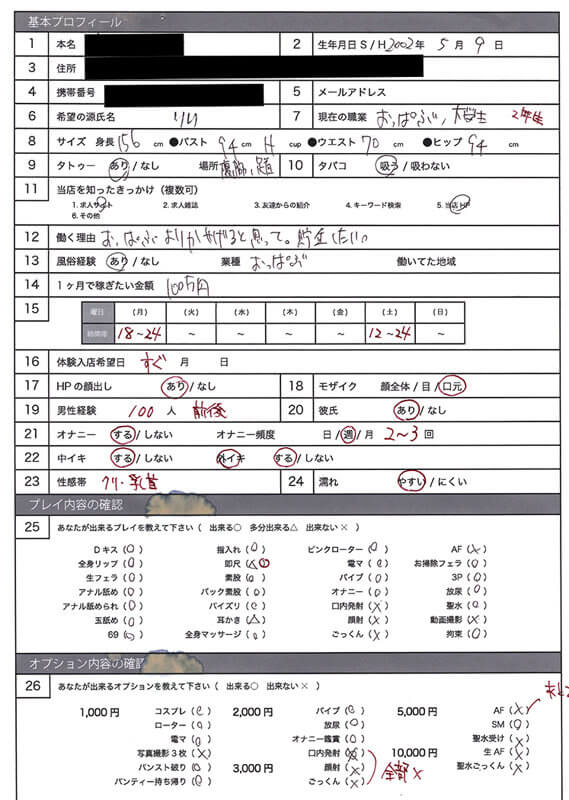 基本プロフィール
1 本名 2 生年月日 S / H 2002年 5月 9日
3 住所
4 携帯番号 5 メールアドレス
6 希望の源氏名 リリ 7 現在の職業 おっぱぶ、大学生 2年生
8 サイズ 身長 156 cm ●バスト 94 cm H cup ●ウエスト 70 cm ●ヒップ 94 cm
9 タトゥー あり / なし 場所 10 タバコ 吸う / 吸わない
11 当店を知ったきっかけ（複数可）
1. 求人サイト 2. 求人雑誌 3. 友達からの紹介 4. キーワード検索 5. 当店HP
6. その他
12 働く理由 おっぱぶよりかせげると思って。貯金したい
13 風俗経験 あり / なし 業種 おっぱぶ 働いてた地域
14 1ヶ月で稼ぎたい金額 100万円
15 曜日 （月） （火） （水） （木） （金） （土） （日）
時間帯 18～24 ～ ～ ～ ～ 12～24 ～
16 体験入店希望日 すぐ 月 日
17 HPの顔出し あり / なし 18 モザイク 顔全体 / 目 / 口元
19 男性経験 100 人 前後 20 彼氏 あり / なし
21 オナニー する / しない オナニー頻度 日 / 週 / 月 2～3 回
22 中イキ する / しない 外イキ する / しない
23 性感帯 クリ・乳首 24 濡れ やすい / にくい
プレイ内容の確認
25 あなたが出来るプレイを教えて下さい（ 出来る○ 多分出来る△ 出来ない× ）
Dキス（○） 指入れ（○） ピンクローター（○） AF（×）
全身リップ（○） 即尺（△○） 電マ（○） お掃除フェラ（○）
生フェラ（○） 素股（○） バイブ（○） 3P（○）
アナル舐め（○） バック素股（○） オナニー（○） 放尿（○）
アナル舐められ（○） パイズリ（○） 口内発射（×） 聖水（○）
玉舐め（○） 耳かき（△） 顔射（×） 動画撮影（×）
69（○） 全身マッサージ（○） ごっくん（×） 拘束（○）
オプション内容の確認
26 あなたが出来るオプションを教えて下さい（ 出来る○ 出来ない× ）
1,000円 コスプレ（○） 2,000円 バイブ（○） 5,000円 AF（×）
ローター（○） 放尿（○） SM（○）
電マ（○） オナニー鑑賞（○） 聖水受け（×）
写真撮影3枚（×） 口内発射（×） 10,000円 生AF（×）
パンスト破り（○） 3,000円 顔射（×） 全部× 聖水ごっくん（×）
パンティー持ち帰り（○） ごっくん（×）